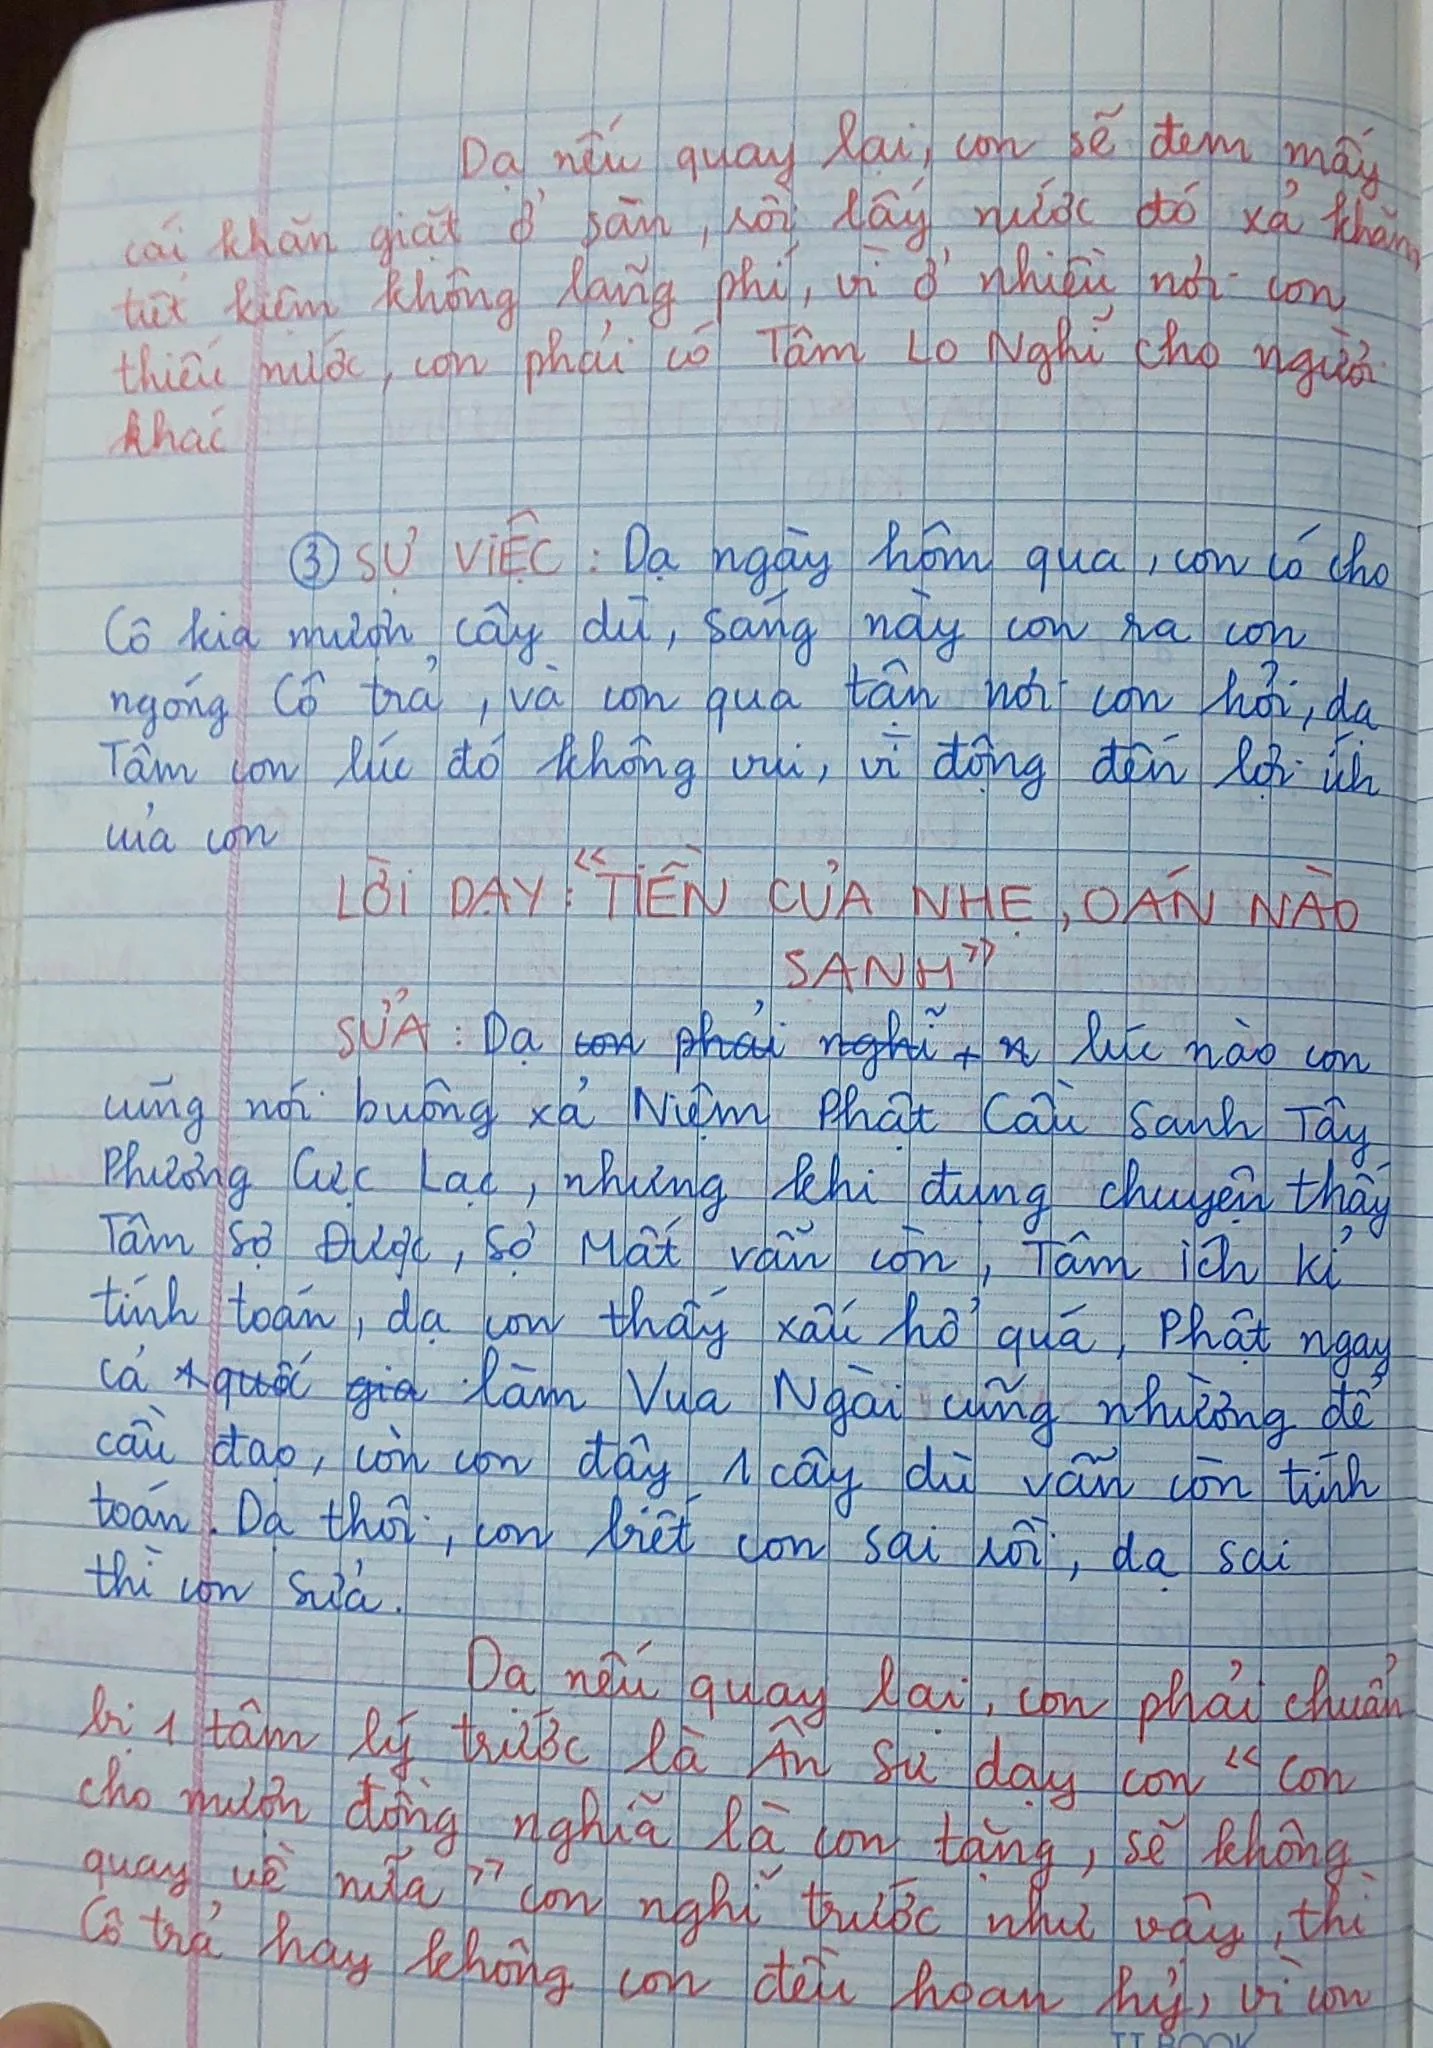 Dạ nếu quay lại, con sẽ đem mấy
cái khăn giặt ở sân, rồi lấy nước đó xả khăn
tiết kiệm không lãng phí, vì ở nhiều nơi con
thiếu nước, con phải có Tâm Lo Nghĩ cho người
khác
③ SỰ VIỆC : Dạ ngày hôm qua, con có cho
Cô kia mượn cây dù, sáng này con ra con
ngóng Cô trả, và con qua tận nơi con hỏi, dạ
Tâm con lúc đó không vui, vì động đến lợi ích
của con
LỜI DẠY : "TIỀN CỦA NHẸ, OÁN NÀO
SANH"
SỬA : Dạ con phải nghĩ + n lúc nào con
cũng nói buông xả Niệm Phật Cầu Sanh Tây
Phương Cực Lạc, nhưng khi đụng chuyện thấy
Tâm Sợ Được, Sợ Mất vẫn còn, Tâm ích kỉ
tính toán, dạ con thấy xấu hổ quá, Phật ngay
cả quốc gia làm Vua Ngài cũng nhường để
cầu đạo, còn con đây 1 cây dù vẫn còn tính
toán. Dạ thôi, con biết con sai rồi, dạ sai
thì con sửa.
Dạ nếu quay lại, con phải chuẩn
bị 1 tâm lý trước là Ân Sư dạy con "con
cho mượn đồng nghĩa là con tặng, sẽ không
quay về nữa" con nghĩ trước như vậy, thì
Cô trả hay không con đều hoan hỷ, vì con